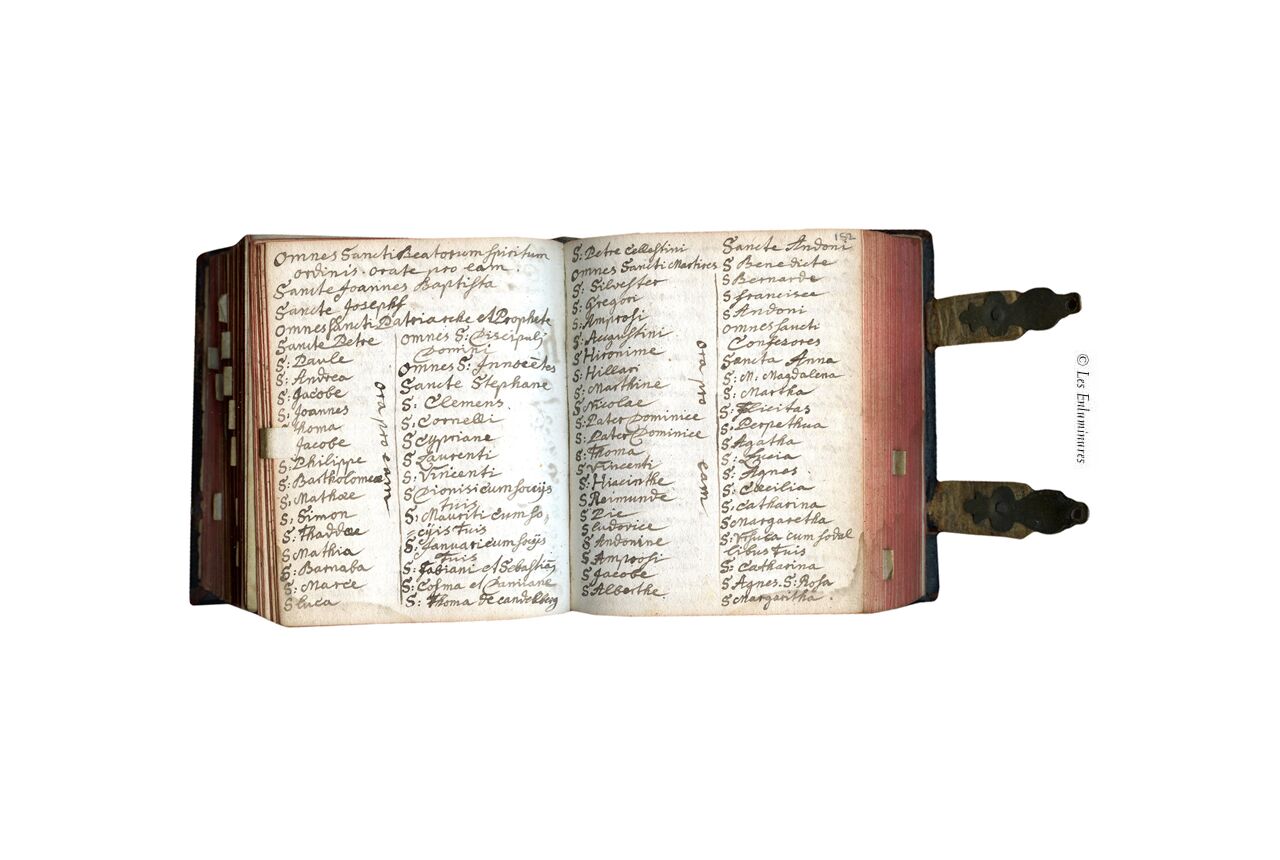 Omnes Sancti Beatorum spiritum
ordinis. orate pro eam.
Sancte Joannes Baptista
Sancte Josephf
Omnes sancti Patriarche et Prophete
Sancte Petre
S: Paule
S: Andrea
S: Jacobe
S: Joannes
Thoma
Jacobe
S: Philippe
S: Bartholomea
S: Mathæe
S, Simon
S: Thaddæe
S Mathia
S: Barnaba
S: Marce
S luca
ora pro eam
omnes S: Discipulj
Domini
Omnes S: Innocētes
Sancte Stephane
S: Clemens
S: Cornelli
S: Cypriane
S: Laurenti
S: Vincenti
S Dionisi cum socÿs
tuis
S: Mauriti cum so,
=cÿis tuis
S: Januari cum socÿs
tuis
S: Fabiani et Sebastian
S: Cosma et Damiane
S: Thoma de candelberg
S: Petre Cellestini
Omnes Sancti Martires
S: Silvester
S: Gregori
S: Amprosi
S: Augustini
S: Hironime
S: Hillari
S: Marthine
S: Nicolae
S: Pater Dominice
S: Pater Dominice
S: Thoma
S: Vincenti
S: Hiacinthe
S: Reimunde
S: Pie
S: ludovice
S: Andonine
S: Amprosi
S: Jacobe
S: Alberthe
ora pro eam
152
Sancte Andoni
S Benedicte
S Bernarde
S francisce
S Andoni
omnes sancti
Confesores
Sancta Anna
S: M: Magdalena
S: Martha
S: Flicitas
S: Perpethua
S: Agatha
S: Lucia
S: Agnes
S: Cæcilia
S: Catharina
S Margaretha
S: Vrsula cum sodal
libus tuis
S: Catharina
S Agnes. S: Rosa
S Margaritha.
© Les Enluminures